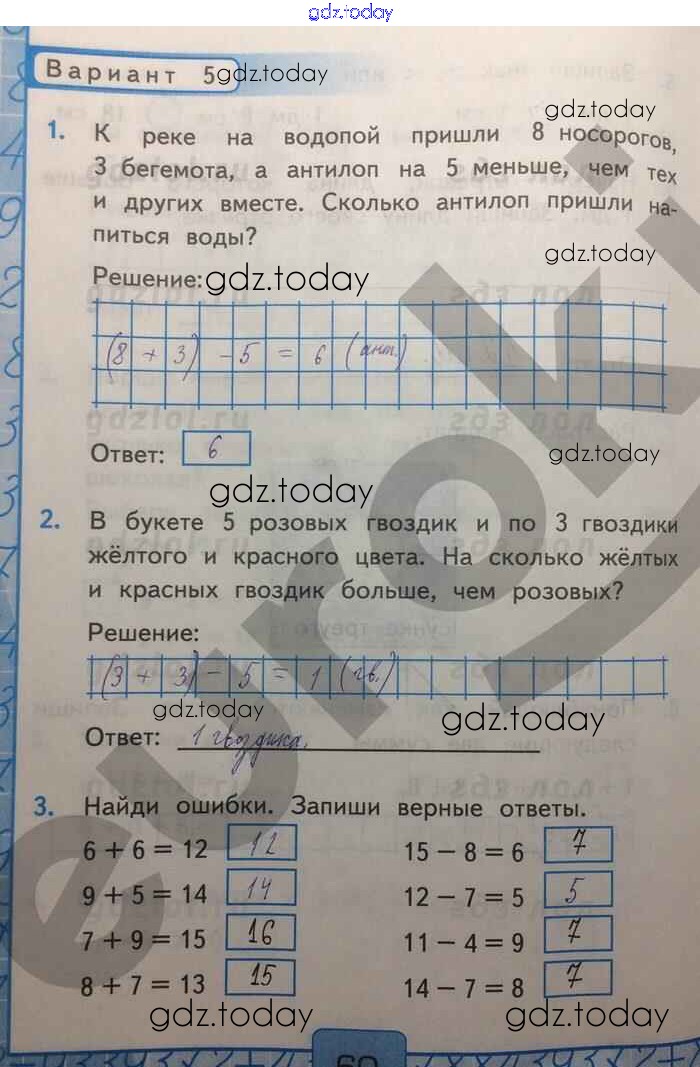 gdz.today
Вариант 5 gdz.today
gdz.today
1. К реке на водопой пришли 8 носорогов,
3 бегемота, а антилоп на 5 меньше, чем тех
и других вместе. Сколько антилоп пришли на-
питься воды?
gdz.today
Решение: gdz.today
(8 + 3) - 5 = 6 (ант.)
Ответ: 6
gdz.today
gdz.today
2. В букете 5 розовых гвоздик и по 3 гвоздики
жёлтого и красного цвета. На сколько жёлтых
и красных гвоздик больше, чем розовых?
Решение: gdz.today
(3 + 3) - 5 = 1 (гв.)
gdz.today gdz.today
Ответ: 1 гвоздика.
3. Найди ошибки. Запиши верные ответы.
6 + 6 = 12 12 15 − 8 = 6 7
9 + 5 = 14 14 12 − 7 = 5 5
7 + 9 = 15 16 11 − 4 = 9 7
8 + 7 = 13 15 14 − 7 = 8 7
gdz.today gdz.today
euroki